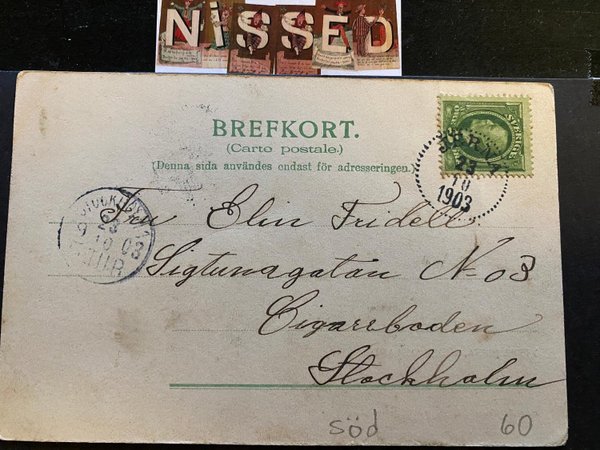 NiSSED
BREFKORT.
(Carto postale.)
(Denna sida användes endast för adresseringen.)
SVERIGE
23
10
1903
23
10 03
Fru Elin Fridell
Sigtunagatan No 3
Cigarrboden
Stockholm
söd
60